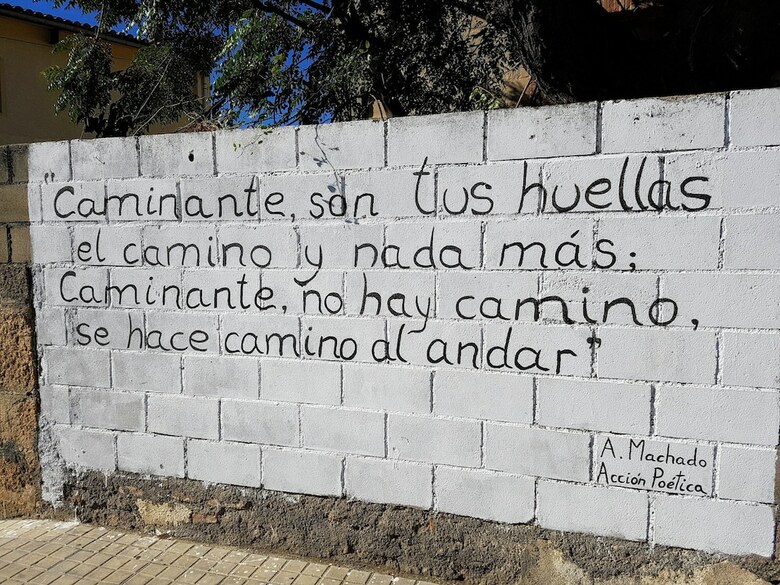 "Caminante, son tus huellas
el camino y nada más;
Caminante, no hay camino,
se hace camino al andar"
A. Machado
Acción Poética